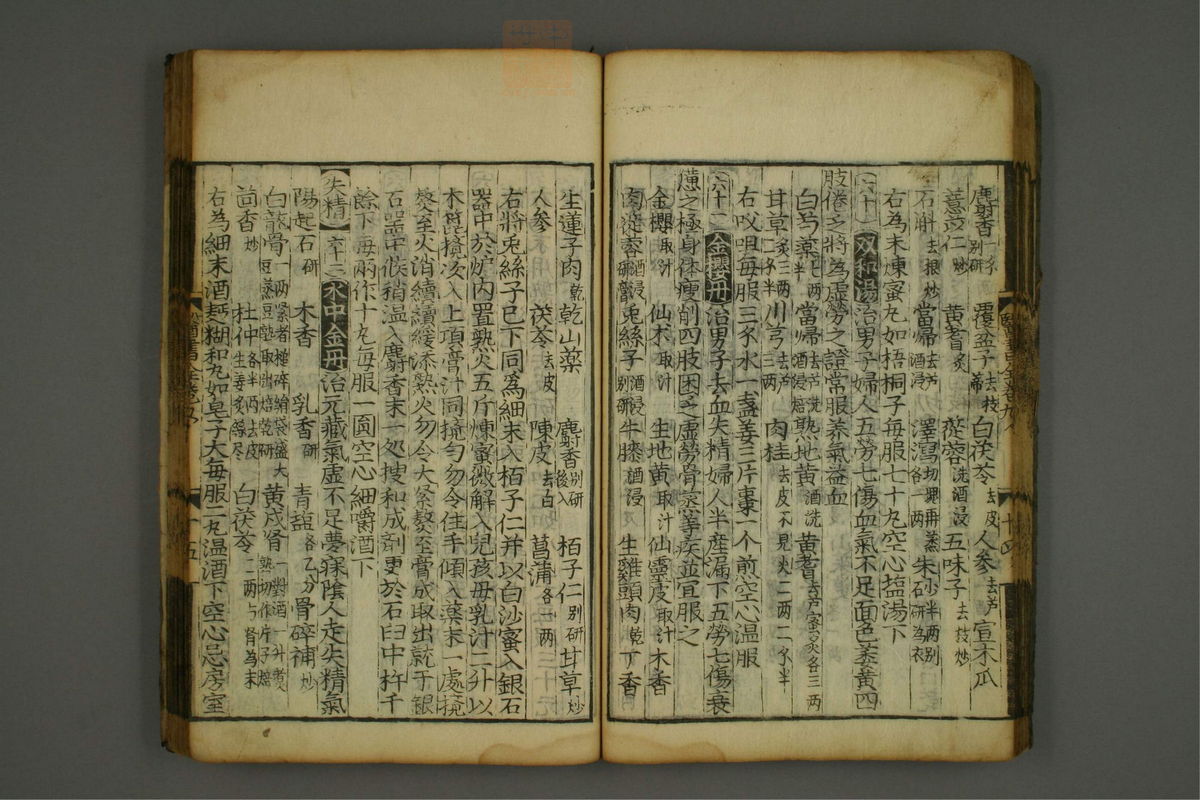 麝香一分別研 覆盆子去枝蒂 白茯苓去皮 人参去芦 宣木瓜
薏苡仁炒 黄耆炙 蓯蓉洗酒浸 五味子去枝炒
石斛去根炒 當歸去芦酒浸 澤瀉切塊再蒸各一兩 朱砂半兩別研為衣
右為末煉蜜丸如梧桐子每服七十丸空心盐湯下
六十一 双和湯治男子婦人五勞七傷血氣不足面色萎黄四
肢倦乏將為虛勞之證當服养氣益血
白芍藥七兩半 當歸去芦洗酒浸焙 熟地黄酒洗 黄耆去芦蜜炙各三兩
甘草炙三兩二分半 川芎去芦三兩 肉桂去皮不見火二兩二分半
右㕮咀每服三分水一盏姜三片棗一个煎空心温服
六十二 金櫻丹治男子去血失精婦人半産漏下五勞七傷衰
憊之極身体瘦削四肢困乏虛勞骨蒸等疾並宜服之
金櫻取汁 仙术取汁 生地黄取汁 仙靈皮取汁 木香
肉蓯蓉酒浸研膏 兎絲子酒浸別研 牛膝酒浸 生雞頭肉乾 丁香
生蓮子肉乾 乾山薬 麝香別研後入 栢子仁別研 甘草炒
人参 茯苓去皮 陳皮去白 菖蒲各二兩
右將兎絲子已下同為細末入栢子仁并以白沙蜜入銀石
器中於炉内置熟火五斤煉蜜微解入兒孩母乳汁二升以
木篦攪次入上項膏汁同攪勻勿令住手傾入薬末一處攪
熬至火消續續緩添熟火勿令大緊熬至膏成取出就于銀
石器中候稍温入麝香末一处搜和成剤更於石臼中杵千
餘下每兩作十丸每服一圓空心細嚼酒下
失精 六十三 永中金丹治元藏氣虛不足夢寐陰人走失精氣
陽起石研 木香 乳香研 青塩各乙分 骨碎補炒
白龍骨一兩緊者槌碎絹袋盛大豆蒸豆塾取出焙乾研 黄戌腎一對酒一升煮熟切作片子焙
茴香炒 杜仲各半兩去皮生姜炙斷尽 白茯苓二兩与腎為末
右為細末酒麪糊和丸如皂子大每服二丸温酒下空心忌房室
十四
十五